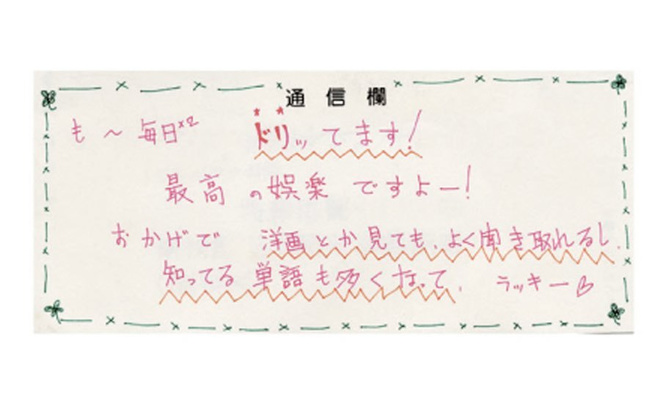 通信欄
も〜毎日×2 ドリッてます!
最高の娯楽ですよー!
おかげで 洋画とか見ても、よく聞き取れるし、
知ってる単語も多くなって、ラッキー♡